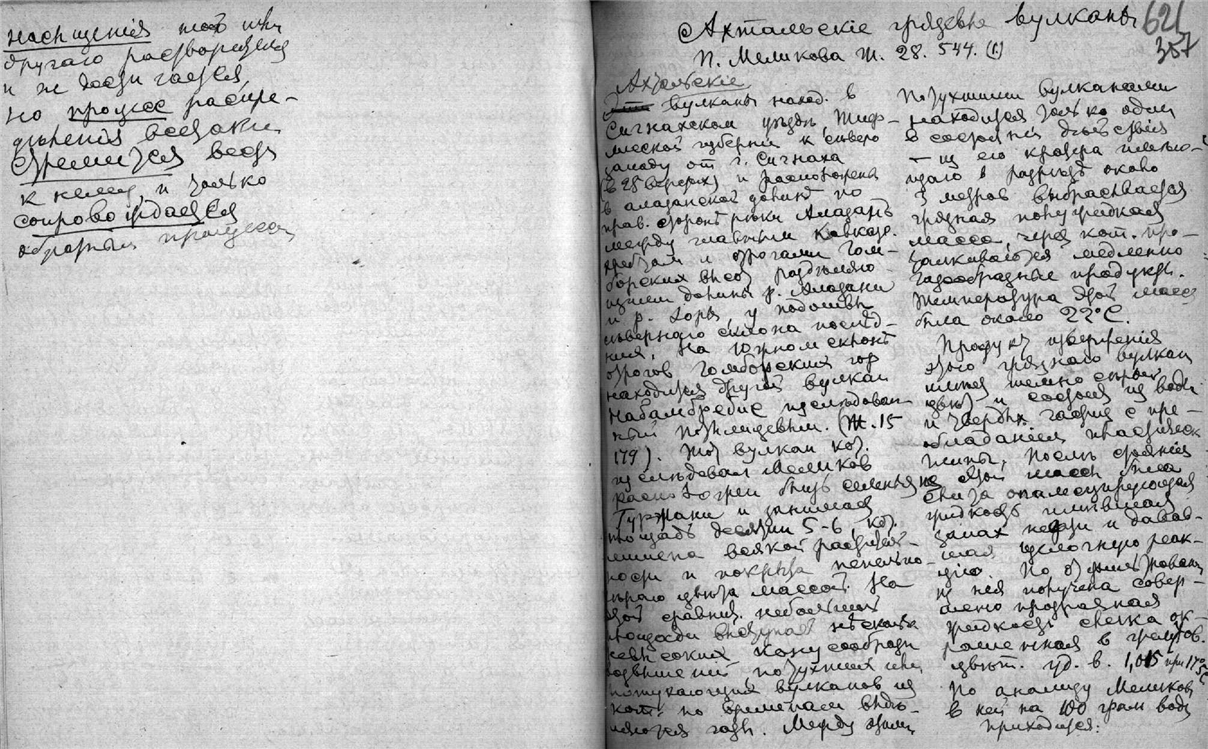 насыщенія той или
другаго растворителя
и не достигается,
но процесс распре-
дѣленія всетаки
стремится всегда
к нему, и только
сопровождается
обратным процессом
621
357
Ахтальскіе грязевые вулканы
П. Меликова Ж. 28. 544. (1)
Ахтальскіе
вулканы наход. в
Сигнахском уѣздѣ, Тиф-
лисской губерніи к сѣверо
западу от г. Сигнаха
(в 25 верстах) и расположены
в алазанской долинѣ по
прав. сторонѣ рѣки Алазань
между главным Кавказ.
хребтом и отрогами Гом-
борских высот раздѣляю-
щими долины р. Алазани
и р. Іоры, у подошвы
сѣвернаго склона послѣд-
ния. На южном склонѣ
отрогов Гомборских гор
находится другой вулкан
изслѣдован-
ный (Ж. 15
179). Этот вулкан кот.
изслѣдовал Меликов
расположен близь селенья
Гурджани и занимая
площадь десятин 5-6, кот.
лишена всякой раститель-
ности и покрыта пепельно-
сѣраго цвѣта массой. На
этой сравнит. небольшой
площади выступает нѣсколько
невысоких конусообразн.
возвышений, потухших или
потухающих вулканов из
кот. по временам выдѣ-
ляются газы. Между этими
потухшими вулканами
находится только один
в состояніи дѣйствія
— из его кратера имѣю-
щаго в разрѣзѣ около
3 метров выбрасывается
грязная полужидкая
масса, через кот. про-
талкиваются медленно
газообразные продукты.
Температура этой массы
была около 22°C.
Продукт изверженія
этого грязнаго вулкана
имѣет темно сѣрый
цвѣт и состоит из воды
и твердых частиц с пре-
обладанием пластическ.
глины, послѣ отстаивания
из этой массы была
слита опалесцирующая
жидкость имѣвшая
запах нефти и давав-
шая щелочную реак-
цію. По отфильтровании
из нея получена совер-
шено прозрачная
жидкость слегка ок-
рашенная в
цвѣт. уд. в. 1,015 при 17°
По анализу Меликова
в ней на 100 грам воды
приходится: